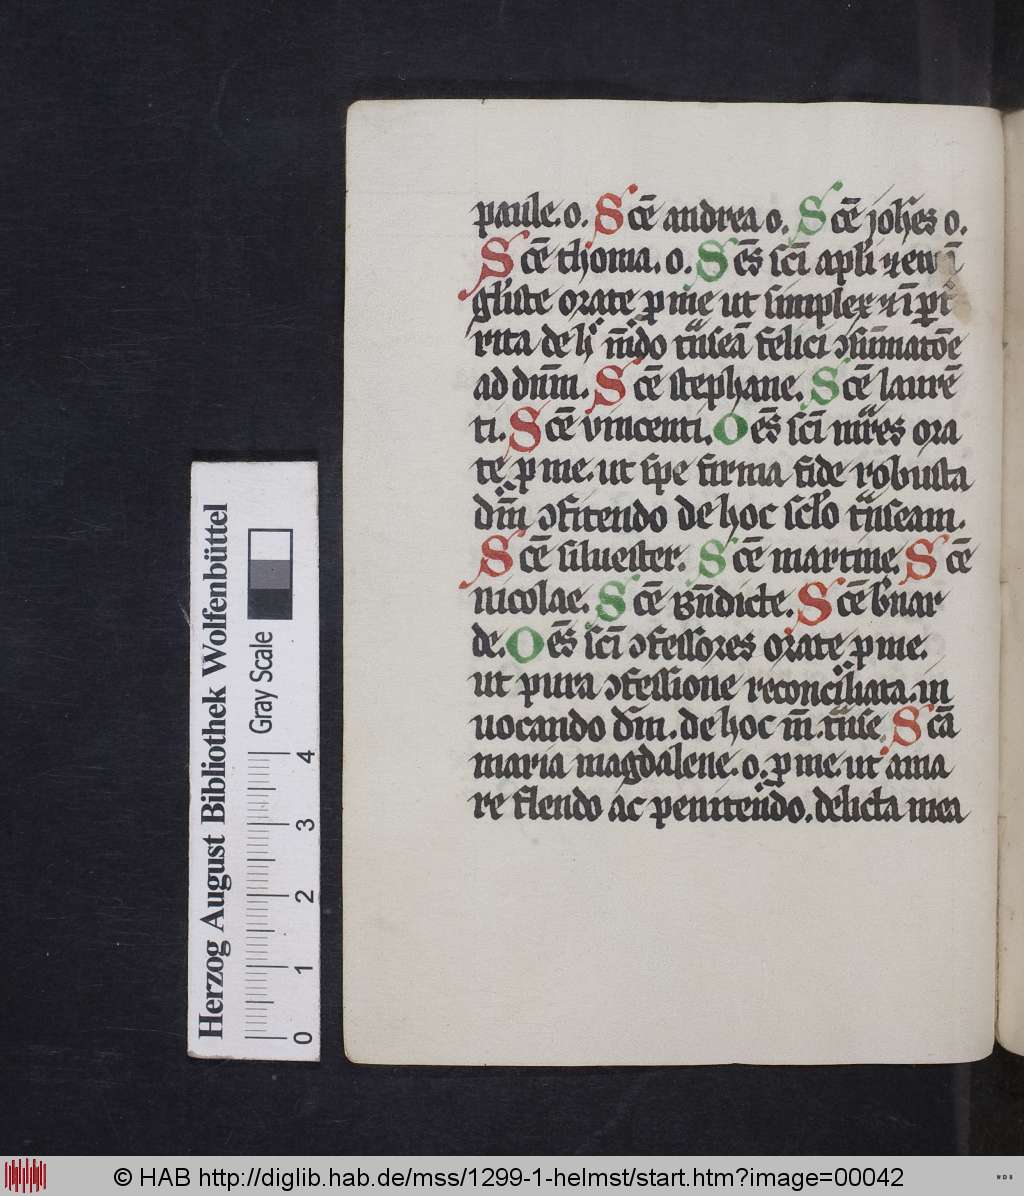 paule. o. Scē andrea o. Scē joh̄es o.
Scē thoma. o. Oēs sc̄i apl̄i ⁊ ewā
gl̄iste orate ꝑ me ut simplex ⁊ ī
rita de h̄ mūdo trāseā felici ꝯsūmatōe
ad dn̄m. Scē stephane. Scē laurē
ti. Scē vincenti. Oēs sc̄i mr̄es ora
te ꝑ me. ut spe firma fide robusta
dm̄ ꝯfitendo de hoc scl̄o trāseam.
Scē siluester. Scē martine. Scē
nicolae. Scē Bn̄dicte. Scē b̄nar
de. Oēs sc̄i ꝯfessores orate ꝑ me.
ut pura ꝯfessione reconciliata. in
uocando dm̄. de hoc m̄. trāse. Scā
maria magdalene. o. ꝑ me. ut ama
re flendo ac penitendo. delicta mea
Herzog August Bibliothek Wolfenbüttel
Gray Scale
0 1 2 3 4
© HAB http://diglib.hab.de/mss/1299-1-helmst/start.htm?image=00042